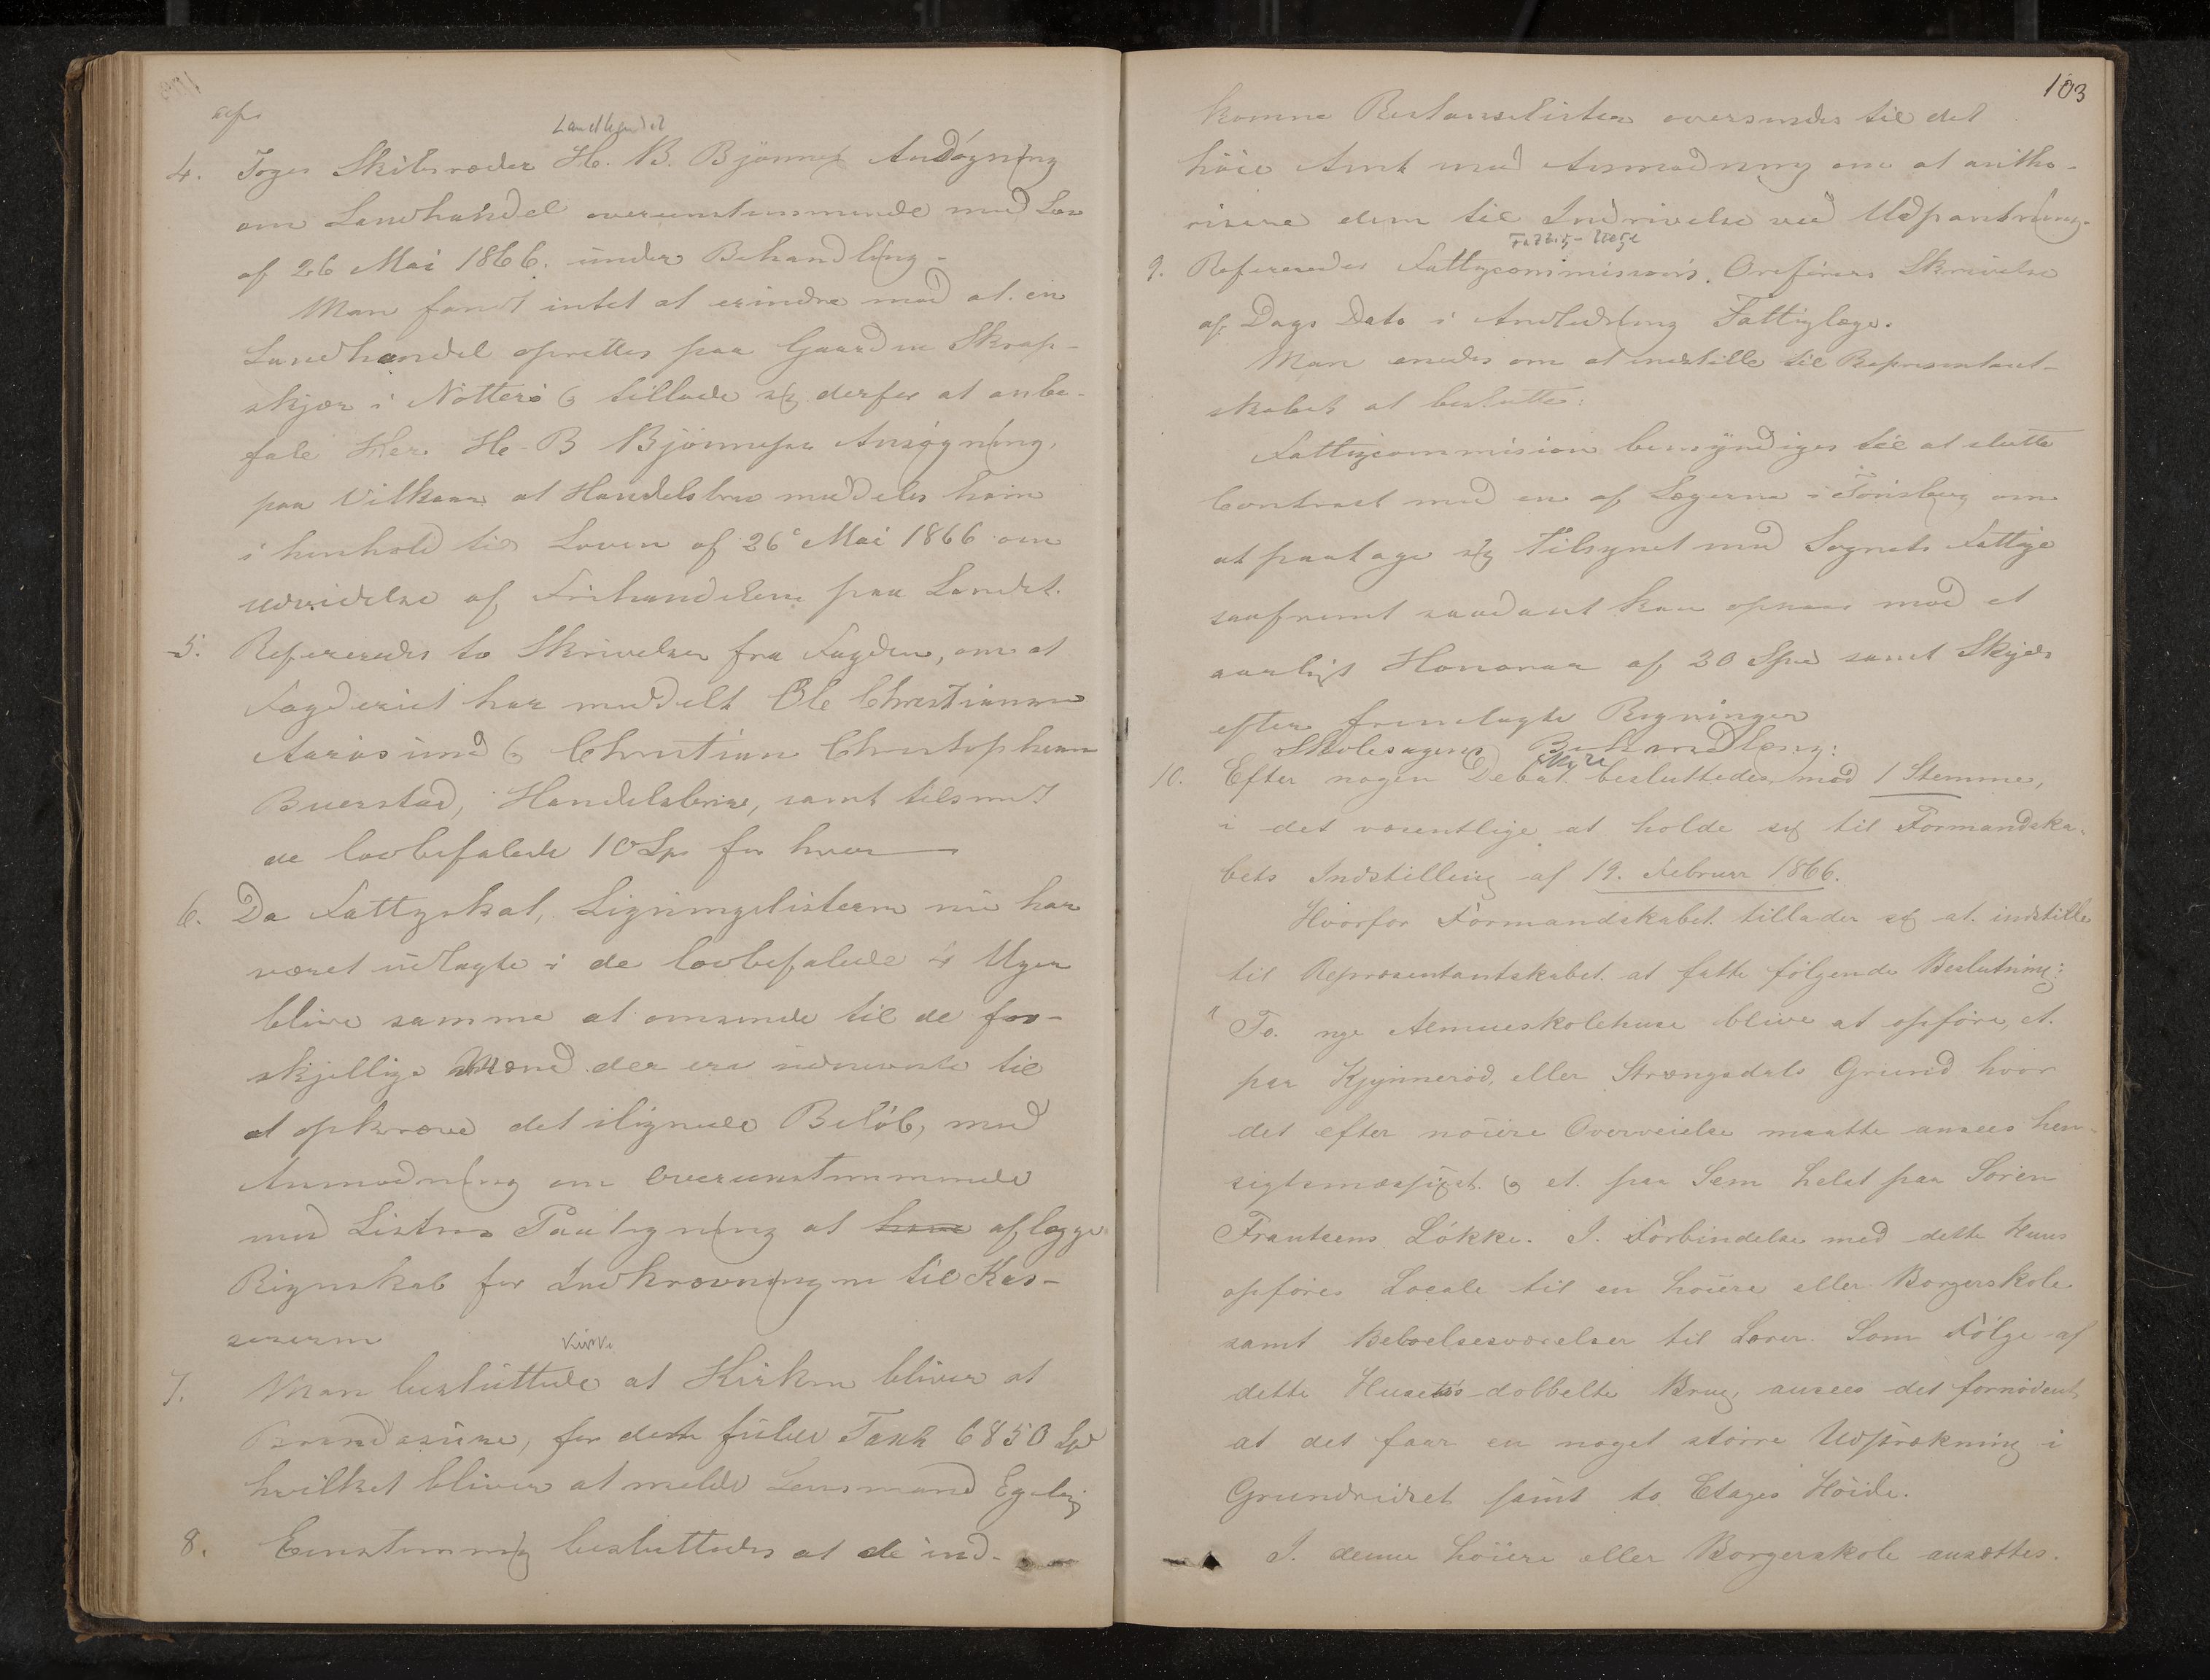 Landhandel
4. Toges Skibsreder H. B. Bjønnes Andøgning
om Landhandel overensstemmende med Lov
af 26 Mai 1866. under Behandling.
Man fandt intet at erindre mod at en
Landhandel oprettes paa Gaarden Skrap-
skjær i Nøtterø & tillade sig derfor at anbe-
fale Herr H. B Bjønnesse Ansøgning,
paa Vilkaar at Handelsbrev meddeles ham
i henhold til Loven af 26e Mai 1866 om
udvidelse af Frihandelen paa Landet.
5. Refereredes to Skrivelser fra Fogden, om at
Fogderiet har meddelt Ole Christiansen
Aarøsund & Christian Christophersen
Buerstad, Handelsbreve, samt tilsendt
de lovbefalede 10 Sp for hver
6. Da Fattigskat, Ligningslisterne nu har
været udlagte i de lovbefalede 4 Uger
blive samme at omsende til de for-
skjellige Mænd der ere udnævnte til
at opkræve det ilignede Beløb, med
Anmodning om overensstemmende
med Listens Paategning at have aflægge
Regnskab for Indkrævningen til Kas-
sereren
Kirke
7. Man besluttede at Kirken bliver at
Brandassure, for dens fulde Taxt 6850 Spd
hvilket bliver at melde Lensmand Egeberg
8. Eenstemmig besluttedes at de ind-
103
komne Restanselister oversendes til det
høie Amt med Anmodning om at autho-
risere dem til Inddrivelse ved Udpantning.
Fattig-læge
9. Refereredes Fattigcommissions Ordførers Skrivelse
af Dags Dato i Anledning Fattiglæge.
Man enedes om at indstille til Representant-
skabet at beslutte:
Fattigcommision bemyndiges til at slutte
Contract med en af Lægerne i Tönsberg om
at paatage sig Tilsynet med Sognets Fattige
saafremt saadant kan opnaaes mod et
aarligt Honorar af 30 Spd samt Skyds
efter fremlagte Regninger
Skolesagens Behandling:
10. Efter nogen Debat besluttedes mod 1 Stemme,
i det væsentlige at holde sig til Formandska-
bets Indstilling af 19. Februar 1866.
Hvorfor Formandskabet tillader sig at indstille
til Repræsentantskabet at fatte følgende Beslutning:
"To nye Almueskolehuse blive at opføre, et
paa Kjynnerød, eller Strængsdals Grund hvor
det efter nøiere Overveielse maatte ansees hen-
sigtsmæssigst & et paa Sem helst paa Sören
Frantsens Løkke. I Forbindelse med dette Huus
opføres Locale til en høiere eller Borgerskole
samt Beboelsesværelser til Lærer. Som Følge af
dette Husets dobbelte Brug, ansees det fornødent
at det faar en noget større Udstrækning i
Grundridset samt to Etages Høide.
I denne høiere eller Borgerskole ansættes